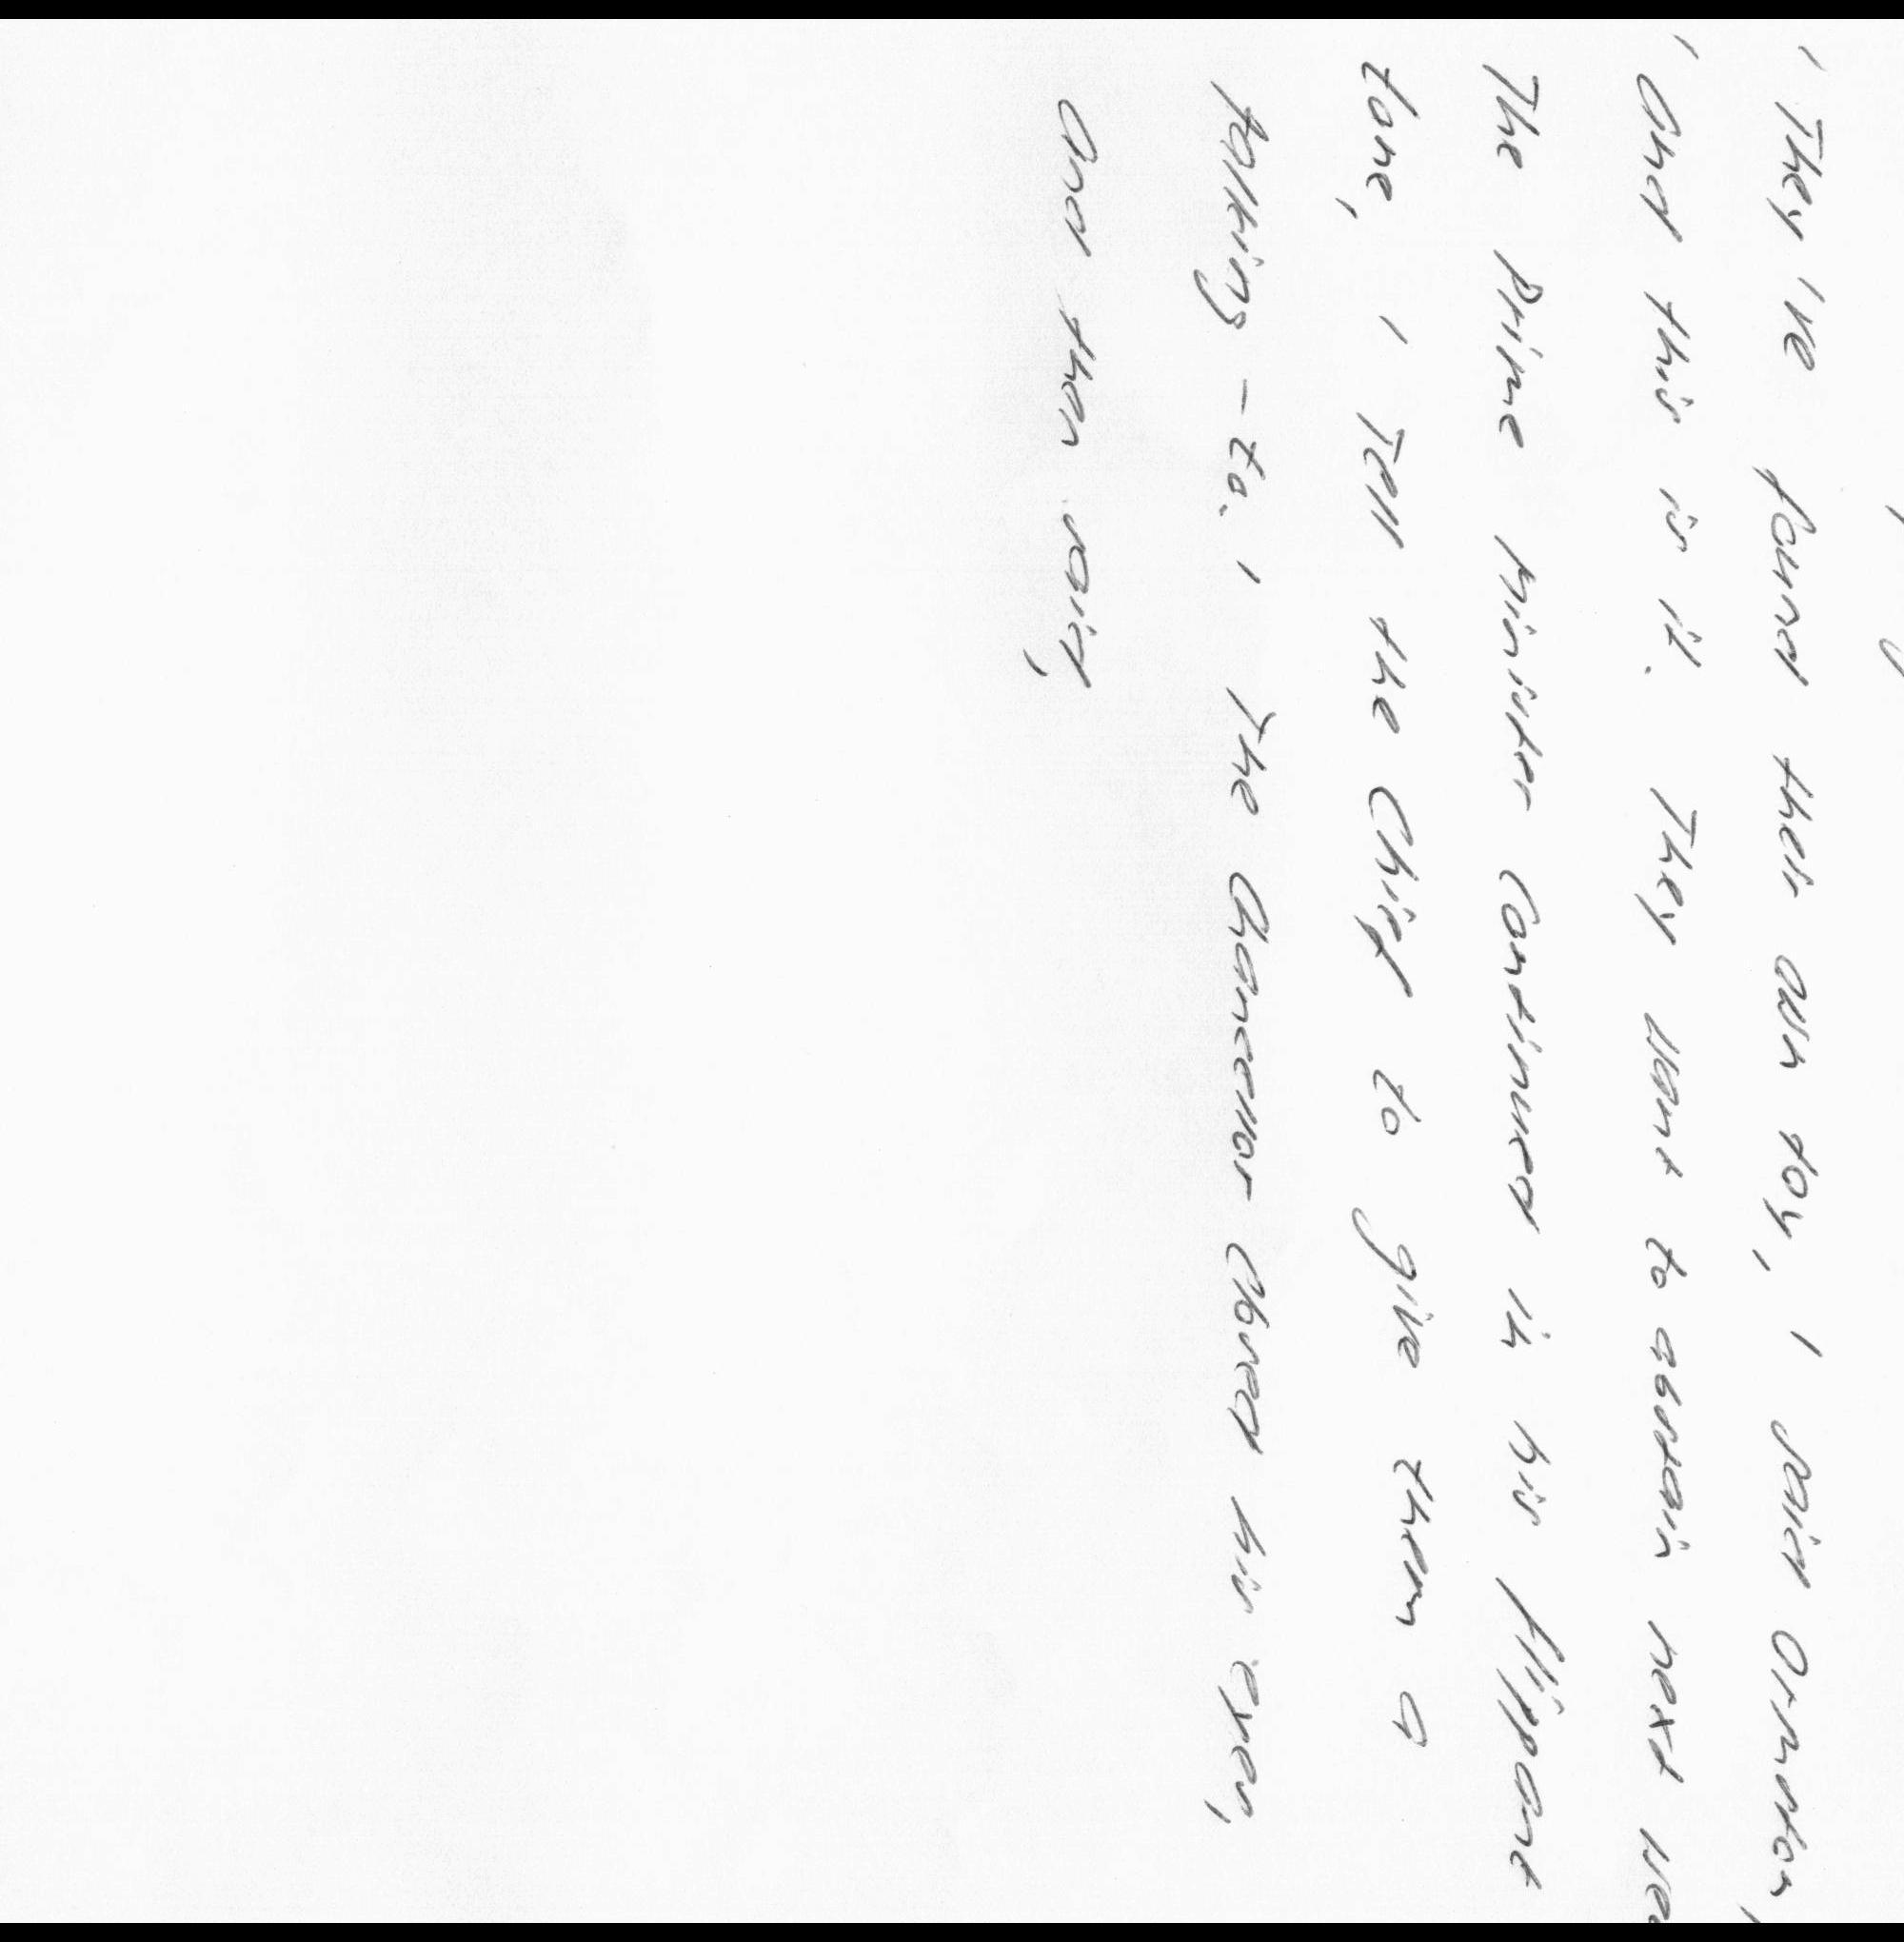 ' They 've found their own toy, ' said Ormston,
' And this is it. They want to abstain next
The Prime Minister continued in his flippant
tone, ' Tell the Chief to give them a
talking - to. ' The Chancellor closed his eyes,
and then said,